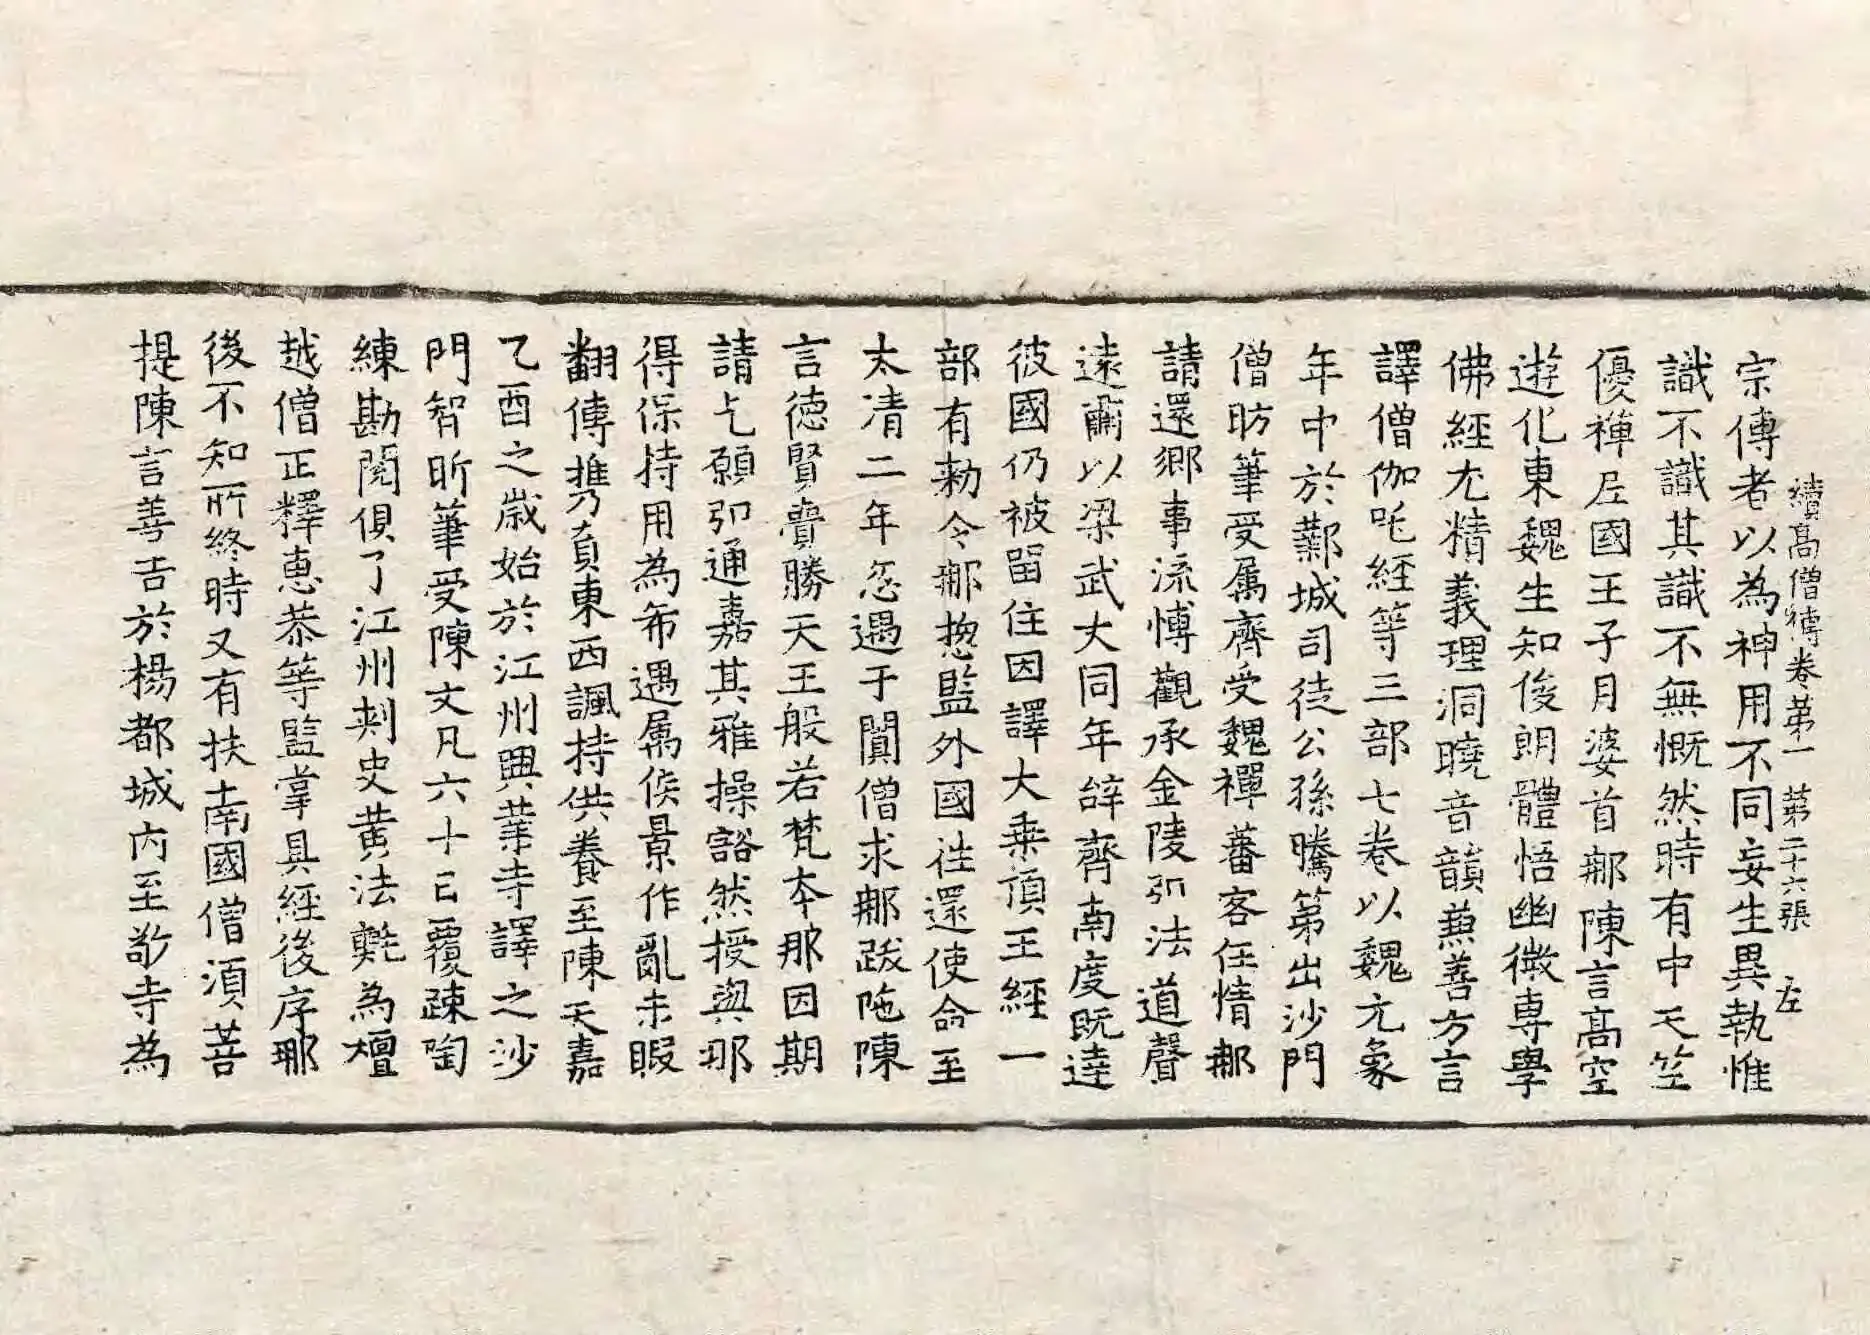 續高僧傳卷第一 第二十六張 左
宗傳者以為神用不同妄生異執惟
識不識其識不無慨然時有中天竺
優禪尼國王子月婆首那陳言高空
遊化東魏生知俊朗體悟幽微專學
佛經尤精義理洞曉音韻兼善方言
譯僧伽吒經等三部七卷以魏元象
年中於鄴城司徒公孫騰第出沙門
僧昉筆受属齊受魏禪蕃客任情那
請還鄉事流博觀承金陵弘法道聲
遠肅以梁武大同年辝齊南度既達
彼國仍被留住因譯大乘頂王經一
部有勑令那揔監外國往還使命至
太清二年忽遇于闐僧求那跋陁陳
言德賢賷勝天王般若梵本那因期
請乞願弘通嘉其雅操豁然授與那
得保持用為希遇属侯景作亂未暇
翻傳携負東西諷持供養至陳天嘉
乙酉之歲始於江州興業寺譯之沙
門智昕筆受陳文凡六十已覆疎陶
練勘閱俱了江州刾史黄法𣰰為檀
越僧正釋惠恭等監掌具經後序那
後不知所終時又有扶南國僧須菩
提陳言善吉於楊都城内至敬寺為